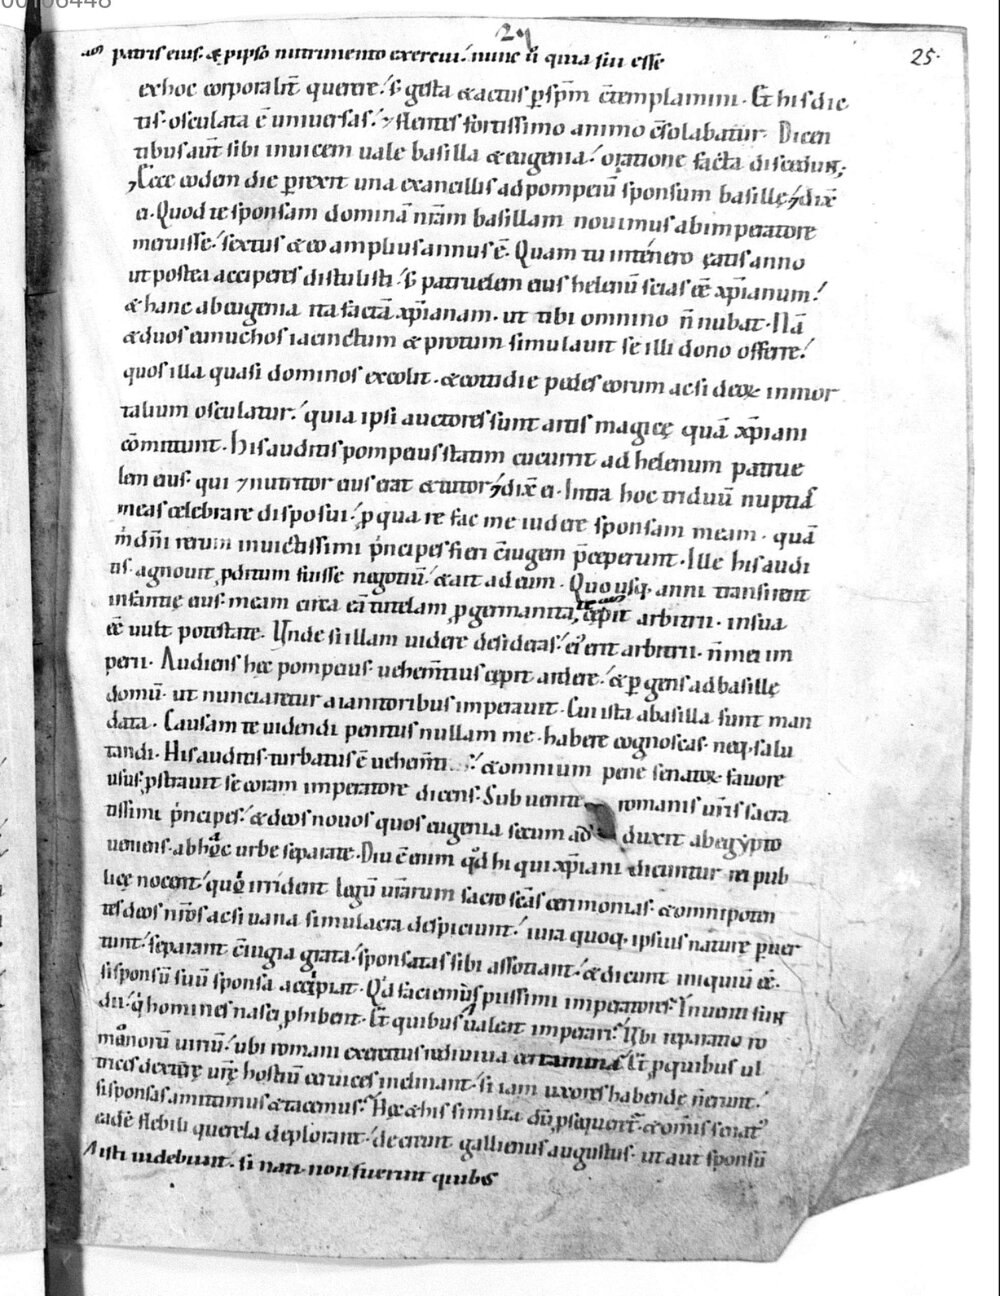 0006448
24
25.
patris eius. & p ipso nutrimento exercui. nunc ũ quia sui esse
ex hoc corporalit̃ querere. s; gesta & actus p sp̃m c̃templamini. Et his dic
tis. osculata ẽ uniuersas. & flentes fortissimo animo c̃solabatur. Dicen
tibus aut̃ sibi inuicem uale basilla & eugenia. oratione facta discedunt;
Ecce eodem die prexit una ex ancillis ad pompeiũ sponsum basillę & dix̃
ei. Quod te sponsam dominã nr̃am basillam nouimus ab imperatore
meruisse. sextus & eo amplius annus ẽ. Quam tu in tenero ętatis anno
ut postea acciperes distulisti. s; patruelem eius helenũ scias eẽ xp̃ianum.
& hanc ab eugenia ita factã xp̃ianam. ut tibi omnino ñ nubat. Nã
& duos eunuchos iacinctum & protum simulauit se illi dono offerre.
quos illa quasi dominos excolit. & cottidie pedes eorum ac si deoꝝ inmor
talium osculatur. quia ipsi auctores sunt artis magicę quã xp̃iani
cõmittunt. His auditis pompeius statim cucurrit ad helenum patrue
lem eius. qui & nutritor eius erat & tutor & dix̃ ei. Intra hoc triduũ nuptias
meas celebrare disposui. p qua re fac me uidere sponsam meam. quã
m̃ dñi rerum inuictissimi p̃ncipes fieri c̃iugem p̃ceperunt. Ille his audi
tis. agnouit pditum fuisse negotiũ. & ait ad eum. Quousq; anni transirent
infantię eius. meam circa eã tutelam p germanitatẽ cępit arbitrii. in sua
eẽ uult potestate. Unde si illam uidere desideras. ei' erit arbitrii. ñ mei im
perii. Audiens hęc pompeius. uehem̃tius cępit ardere. & pgens ad basillę
domũ. ut nunciaretur a ianitoribus imperauit. Cui ista a basilla sunt man
data. Causam te uidendi penitus nullam me habere cognoscas. neq; salu
tandi. His auditis. turbatus ẽ uehem̃ti & omnium pene senatoꝝ fauore
usus. pstrauit se coram imperatore dicens. Subuenite romanis ur̃is sacra
tissimi p̃ncipes. & deos nouos quos eugenia secum adduxit ab egypto
ueniens. ab hac urbe separate. Diu ẽ enim qđ hi qui xp̃iani dicuntur rei pub
licę nocent. qui irrident legũ ur̃arum sacro sc̃as cerimonias. & omnipoten
tes deos nr̃os ac si uana simulacra despiciunt. iura quoq; ipsius naturę puer
tunt. separant c̃iugia grata. sponsatas sibi assotiant. & dicunt iniquũ eẽ.
si sponsũ suũ sponsa accipiat. Qd faciemus piissimi imperatores. Inuenti sunt
dii. q' homines nasci phibent. Et quibus ualeat imperari. Ubi reparatio ro
manorũ uiriũ. ubi romani exercitus rediuiua certamina. Et p quibus ul
trices dexterę ur̃ę hostiũ ceruices inclinant. si iam uxores habendę ñ erunt.
si sponsas amittimus & tacemus. Hęc & his similia dũ psequeret̃. & om̃is senat'
eadẽ flebili querela deplorant. decreuit gallienus augustus. ut aut sponsũ
Aisti uidebunt. si nati non fuerint quibus